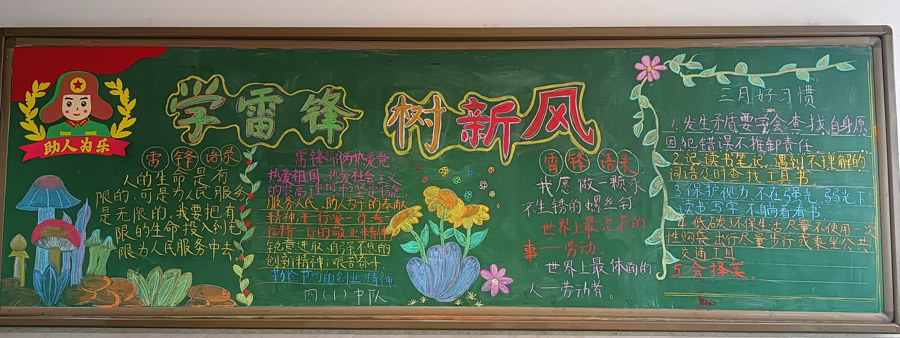 学雷锋 树新风
助人为乐
雷锋语录
人的生命是有
限的,可是为人民服务
是无限的,我要把有
限的生命投入到无
限为人民服务中去
雷锋精神热爱党
热爱祖国,热爱社会主义
的崇高理想和坚定信念
服务人民、助人为乐的奉献
精神,干一行爱一行、专一
行精一行的敬业精神
锐意进取、自强不息的
创新精神;艰苦奋斗
勤俭节约的创业精神
四(1)中队
雷锋语录
我愿做一颗永
不生锈的螺丝钉
世界上最光荣的
事—劳动
世界上最体面的
人—劳动者。
三月好习惯
1.发生矛盾要学会查找自身原
因,犯错误不推卸责任
2.记读书笔记,遇到不理解的
词语及时查找工具书
3.保护视力,不在强光、弱光下
读书写字,不躺着看书
4.低碳环保生活,尽量不使用一次
性购袋,出行尽量步行或乘坐公共
交通工具
5.会择菜